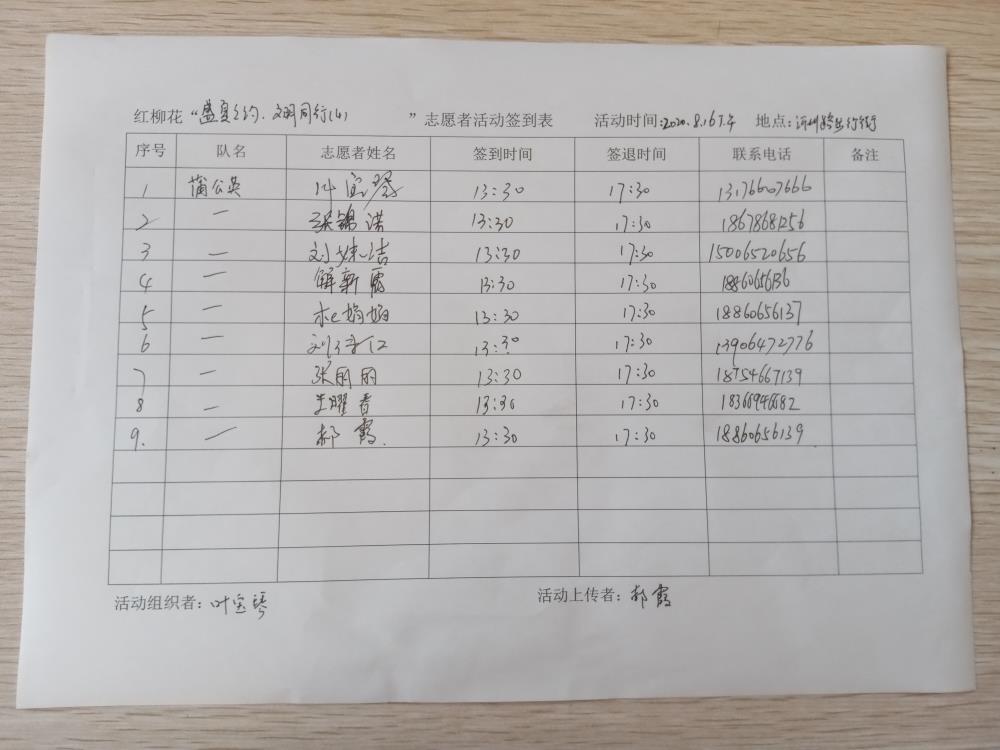 红柳花“盛夏之约.文明同行(4)”志愿者活动签到表 活动时间:2020.8.16下午 地点:步行街
序号 队名 志愿者姓名 签到时间 签退时间 联系电话 备注
1 蒲公英 叶宝琴 13:30 17:30 13176607666
2 一 张锦洪 13:30 17:30 18678681256
3 一 刘洁 13:30 17:30 15006520656
4 一 解新霞 13:30 17:30 18860656136
5 一 杜娟娟 13:30 17:30 18860656137
6 一 刘 13:30 17:30 13906472776
7 一 张丽丽 13:30 17:30 18754667139
8 一 王曜春 13:30 17:30 18366946682
9. 一 郝霞. 13:30 17:30 18860656139
活动组织者：叶宝琴 活动上传者：郝霞